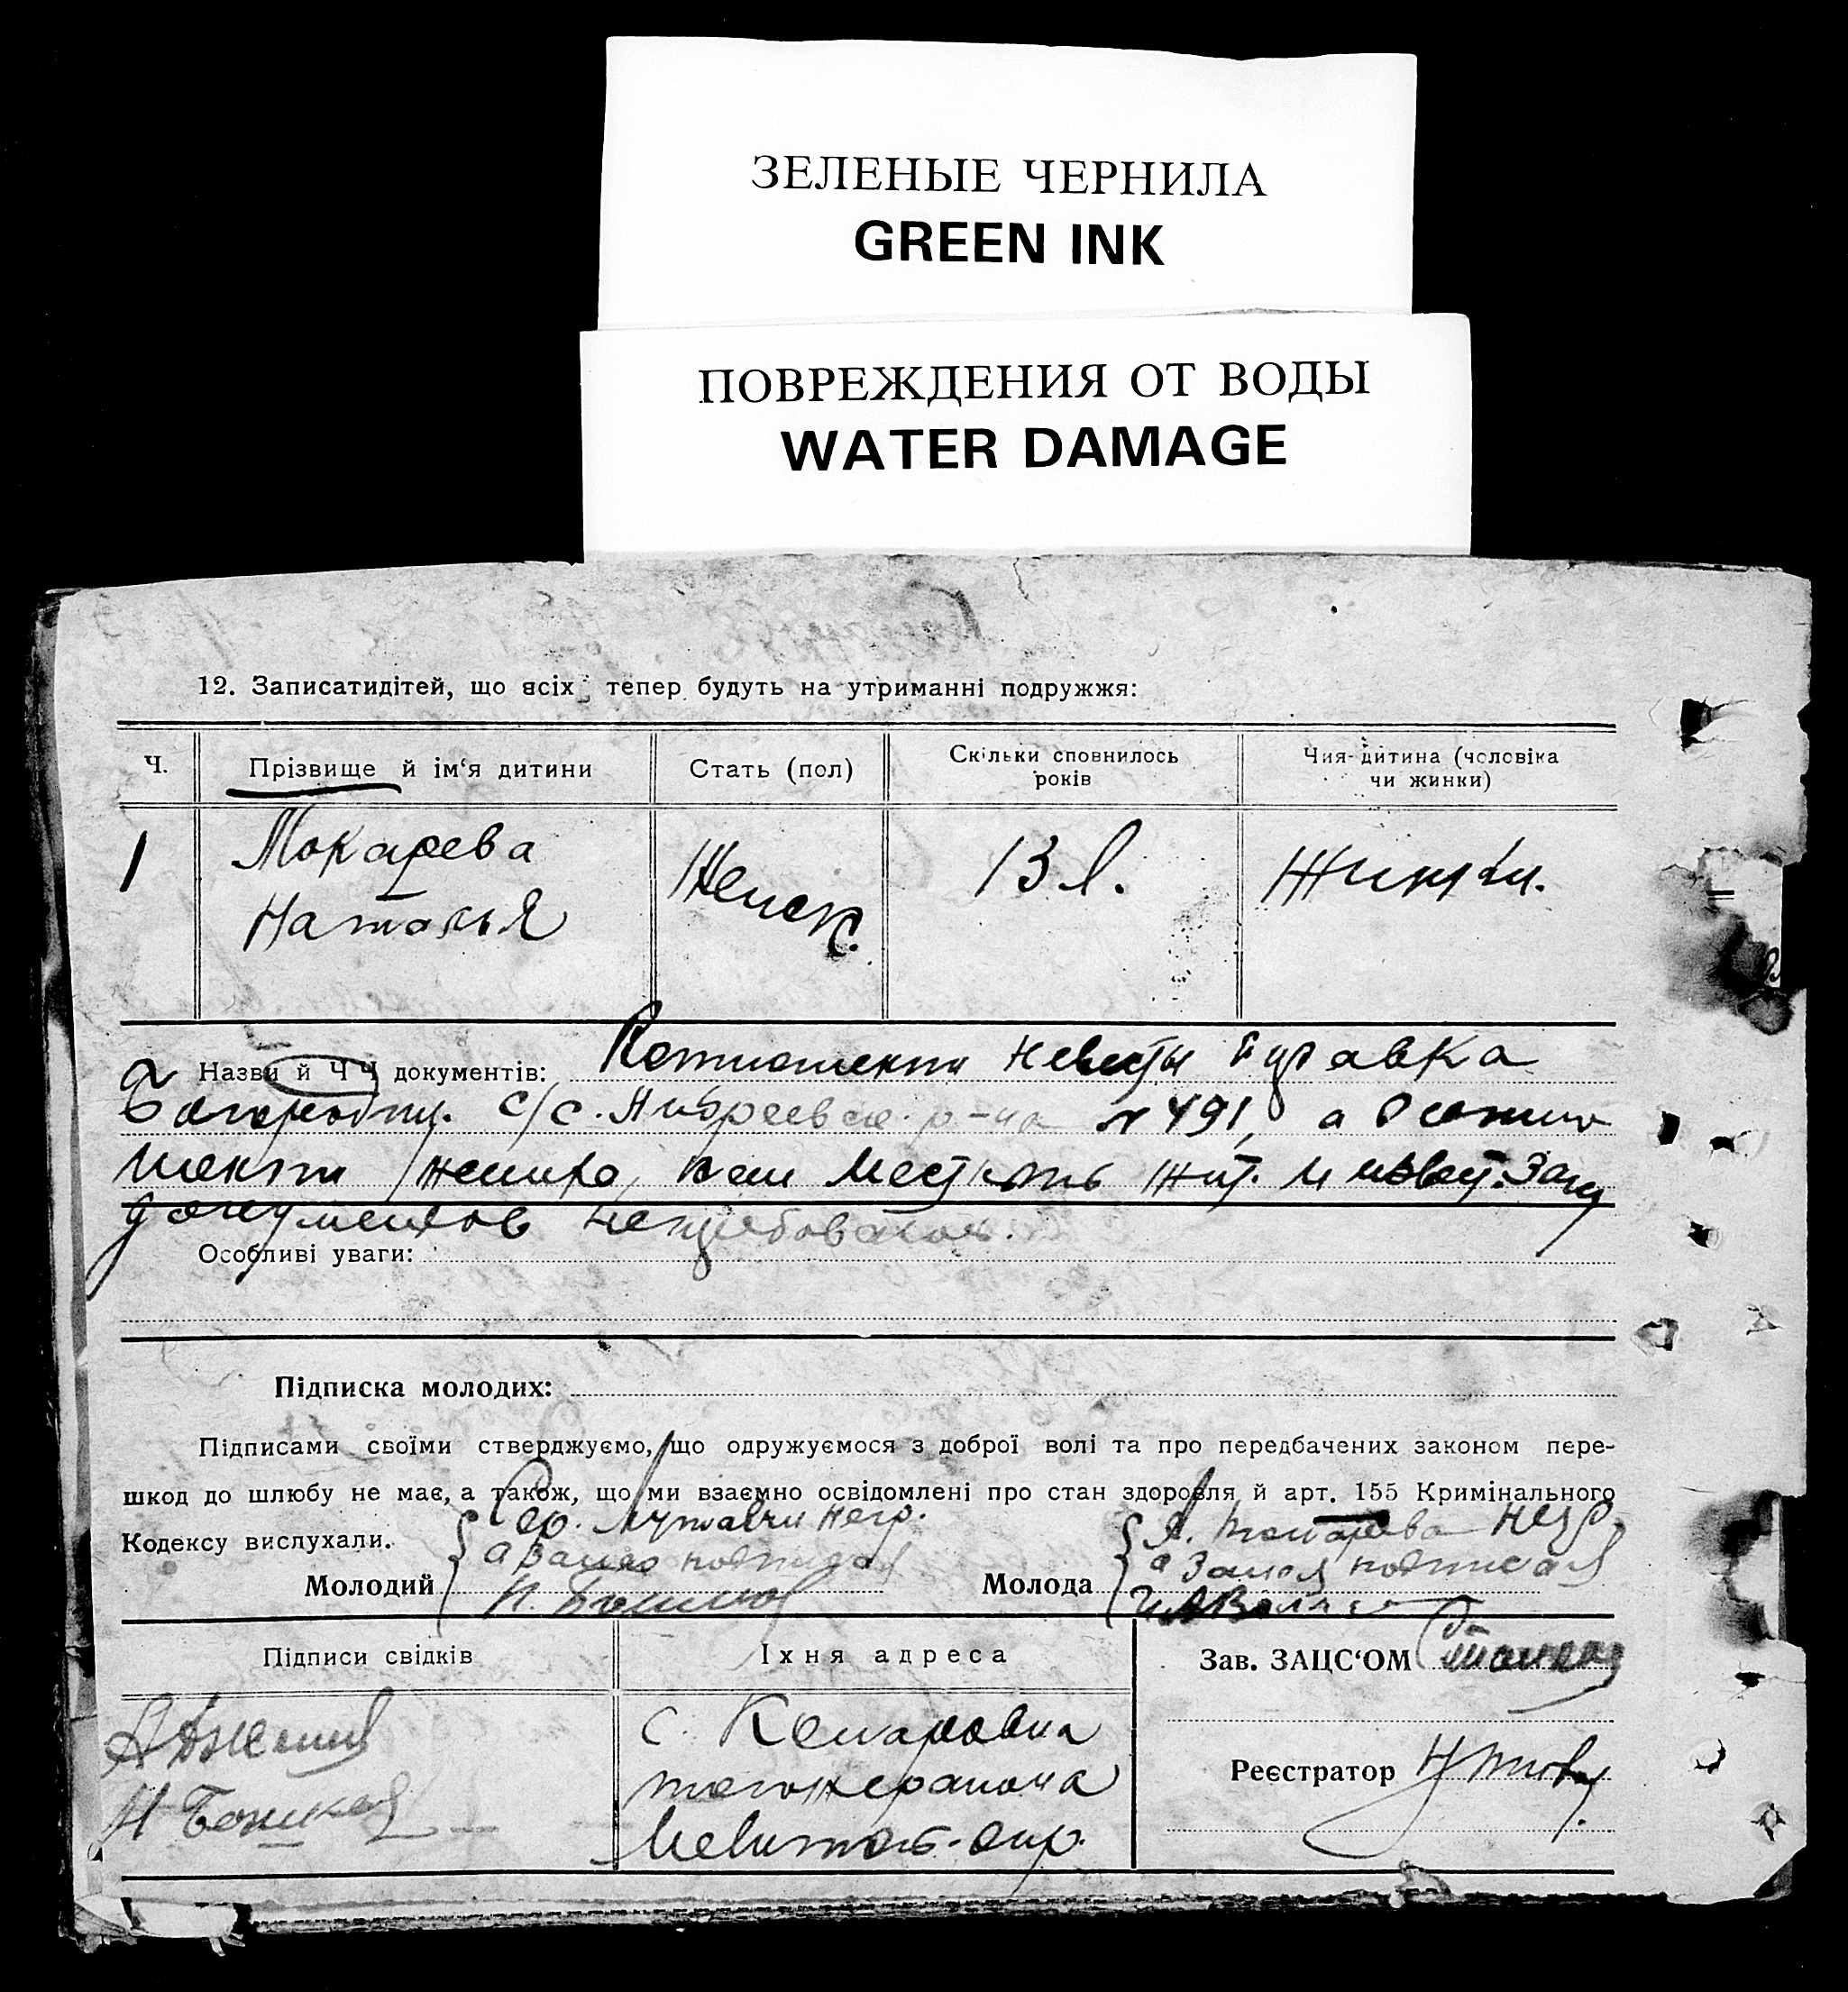 ЗЕЛЕНЫЕ ЧЕРНИЛА
GREEN INK
ПОВРЕЖДЕНИЯ ОТ ВОДЫ
WATER DAMAGE
12. Записатидітей, що всіх тепер будуть на утриманні подружжя:
Ч.
Прізвище й ім‘я дитини
Стать (пол)
Скільки сповнилось
років
Чия-дитина (чоловіка
чи жинки)
1
Макарева
Наталья
Женск.
13 л.
Жинки.
Назви й ЧЧ документів: невесты справка
с/с. Андреевск. р-на № 491, а
жениха, как мест. жит. и извест. Загсу
документов не требовалось.
Особливі уваги:
Підписка молодих:
Підписами своїми стверджуємо, що одружуємося з доброї волі та про передбачених законом пере-
шкод до шлюбу не має, а також, що ми взаємно освідомлені про стан здоровля й арт. 155 Кримінального
Кодексу вислухали.
негр.
а за него подписал
Молодий
негр.
а за нея подписал
Молода
Підписи свідків
Іхня адреса
Зав. ЗАЦС‘ОМ
с. Комаровка
тогоже района
Мелитоп. окр.
Реєстратор